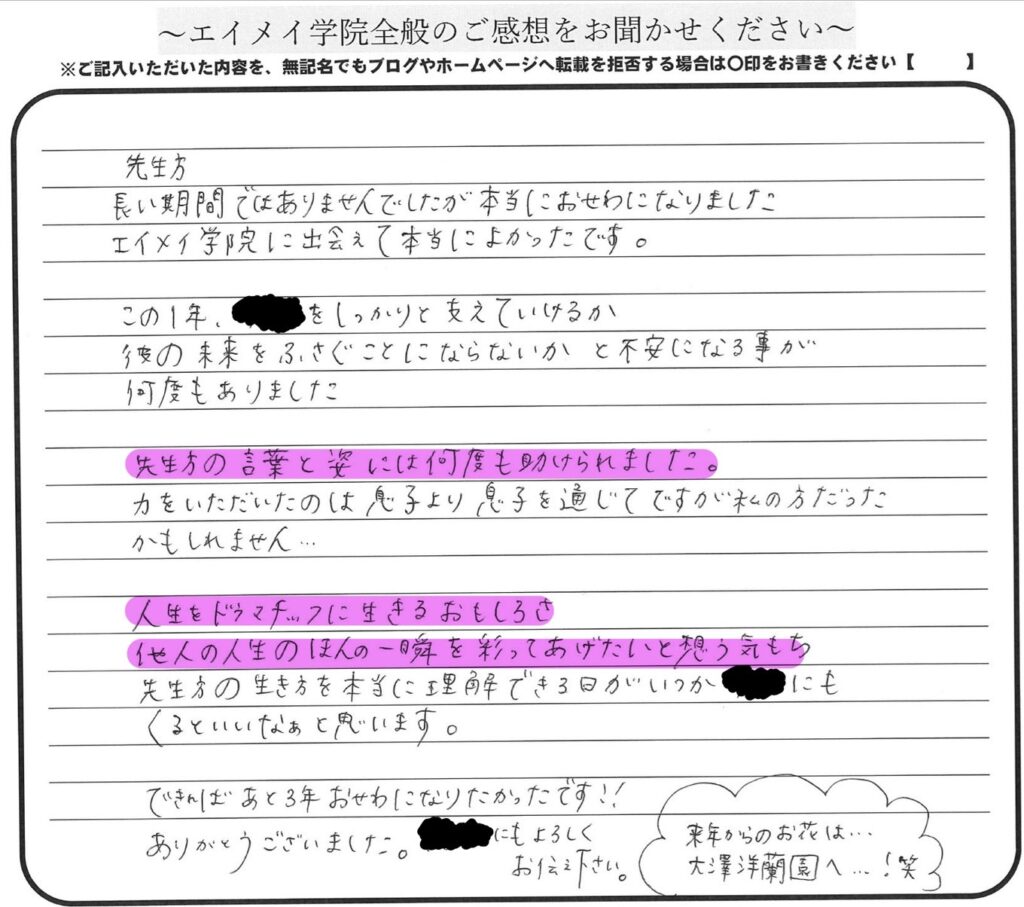 ～エイメイ学院全般のご感想をお聞かせください～
※ご記入いただいた内容を、無記名でもブログやホームページへ転載を拒否する場合は〇印をお書きください【　　】
先生方
長い期間ではありませんでしたが本当におせわになりました
エイメイ学院に出会えて本当によかったです。
この1年、をしっかりと支えていけるか
彼の未来をふさぐことにならないか と不安になる事が
何度もありました
先生方の言葉と姿には何度も助けられました。
力をいただいたのは息子より息子を通じてですが私の方だった
かもしれません…
人生をドラマチックに生きるおもしろさ
他人の人生のほんの一瞬を彩ってあげたいと想う気もち
先生方の生き方を本当に理解できる日がいつかにも
くるといいなぁと思います。
できればあと3年おせわになりたかったです!!
ありがとうございました。にもよろしく
お伝え下さい。
来年からのお花は…
大澤洋蘭園へ…!笑